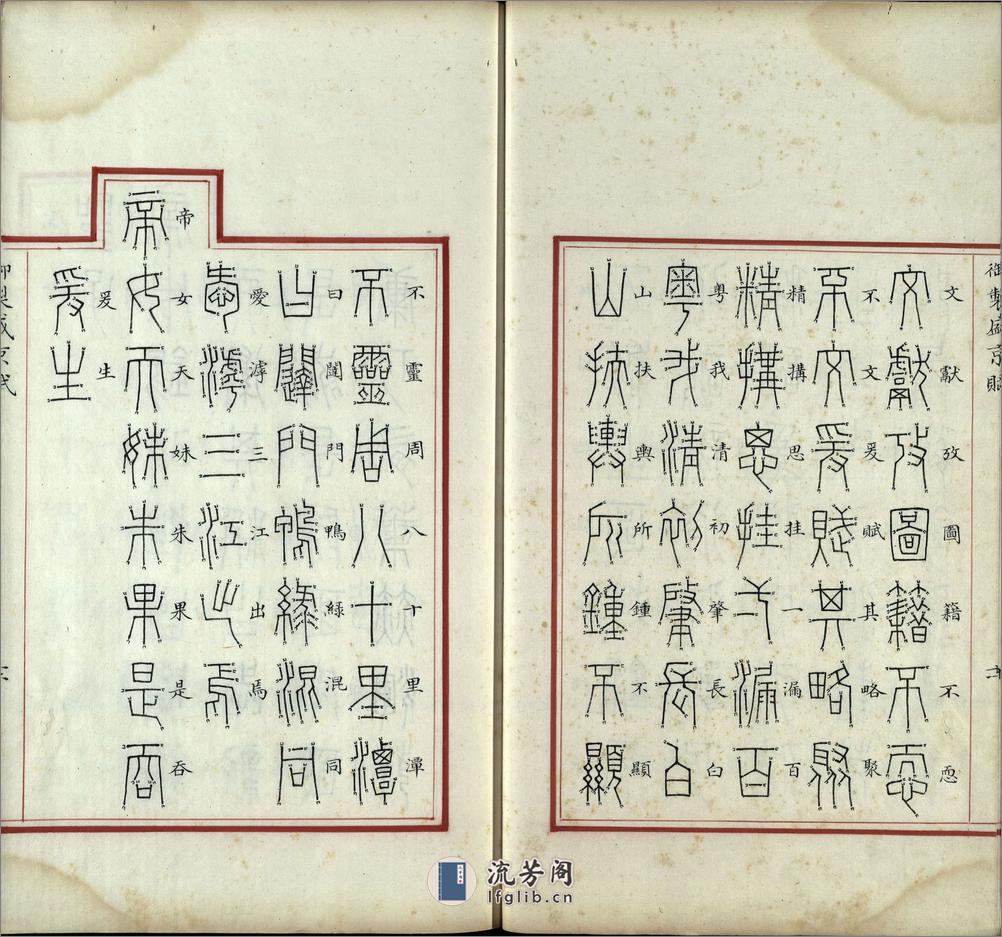 御製盛京賦
文獻攷圖籍不恧
不文爰賦其略聚
精搆思挂一漏百
粵我清初肇長白
山扶輿所鍾不顯
不靈周八十里潭
曰闥門鴨綠混同
愛滹三江出焉
帝女天妹朱果是吞
爰生
御製盛京賦
流芳阁
lfglib.cn